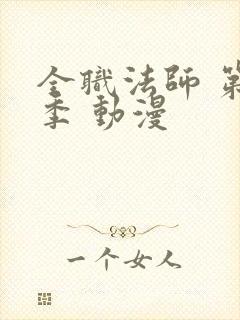 全職法師 第
季 動漫
一个女人